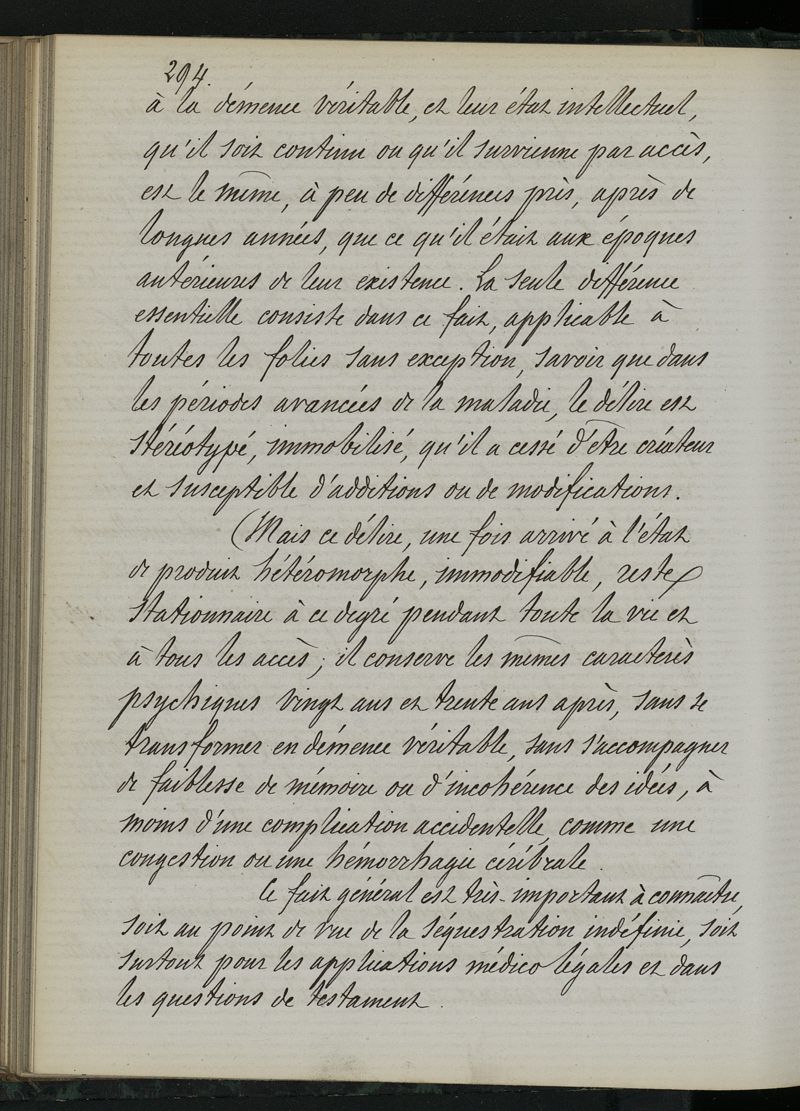 294
à la démence véritable, et leur état intellectuel,
qu'il soit continu ou qu'il survienne par accès,
est le même, à peu de différences près, après de
longues années, que ce qu'il était aux époques
antérieures de leur existence. La seule différence
essentielle consiste dans ce fait, applicable à
toutes les folies sans exception, savoir que dans
les périodes avancées de la maladie, le délire est
stéréotypé, immobilisé, qu'il a cessé d'être créateur
et susceptible d'additions ou de modifications.
(Mais ce délire, une fois arrivé à l'état
de produit hétéromorphe, immodifiable, reste
stationnaire à ce degré pendant toute la vie et
à tous les accès; il conserve les mêmes caracterès
psychiques vingt ans et trente ans après, sans se
transformer en démence véritable, sans s'accompagner
de faiblesse de mémoire ou d'incohérence des idées, à
moins d'une complication accidentelle, comme une
congestion ou une hémorrhagie cérébrale.
Ce fait général est très-important à connaître,
soit au point de vue de la séquestration indéfinie, soit
surtout pour les applications médico légales et dans
les questions de testament.